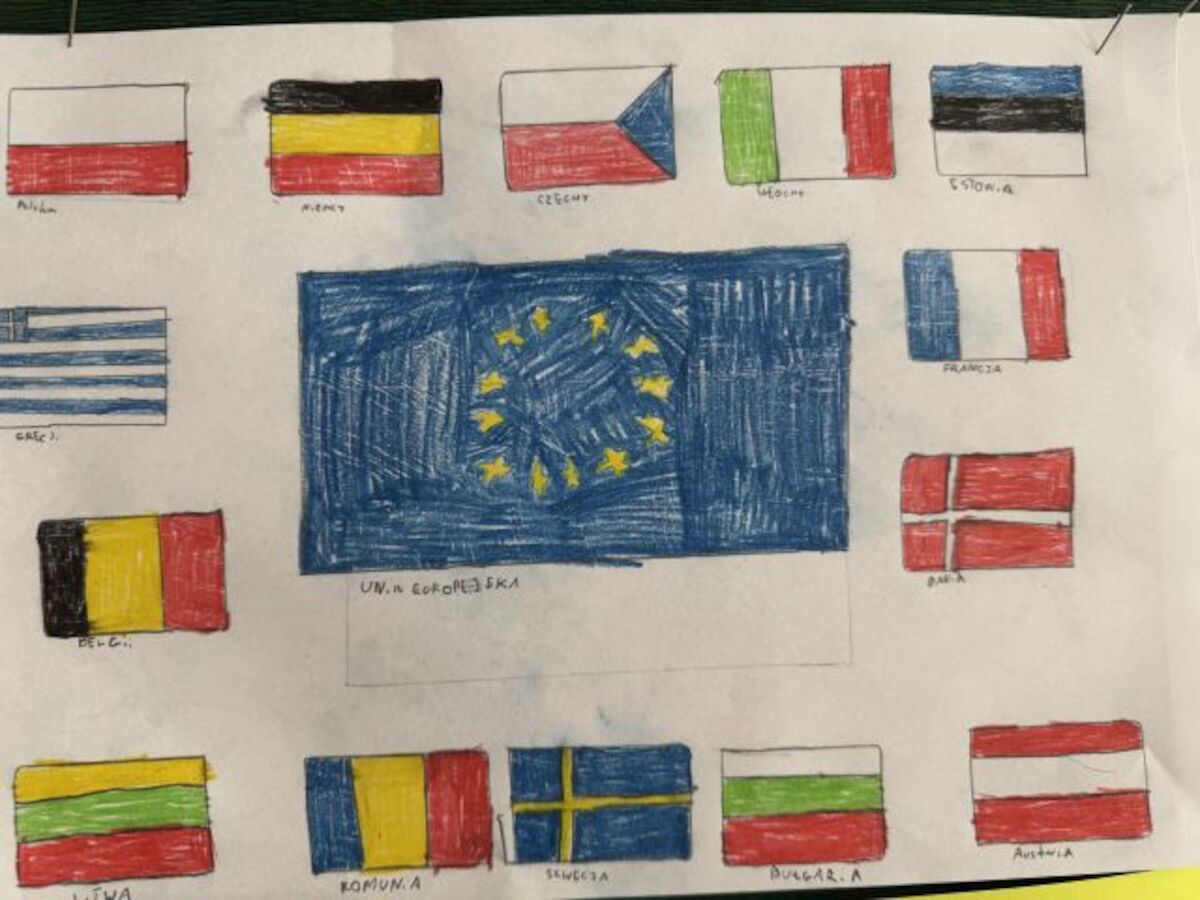 Polska
NIEMCY
CZECHY
WŁOCHY
ESTONIA
FRANCJA
GRECJ.
UNIA EUROPEJSKA
DANIA
BELGI.
LITWA
RUMUNIA
SZWECJA
BUŁGARIA
AUSTRIA